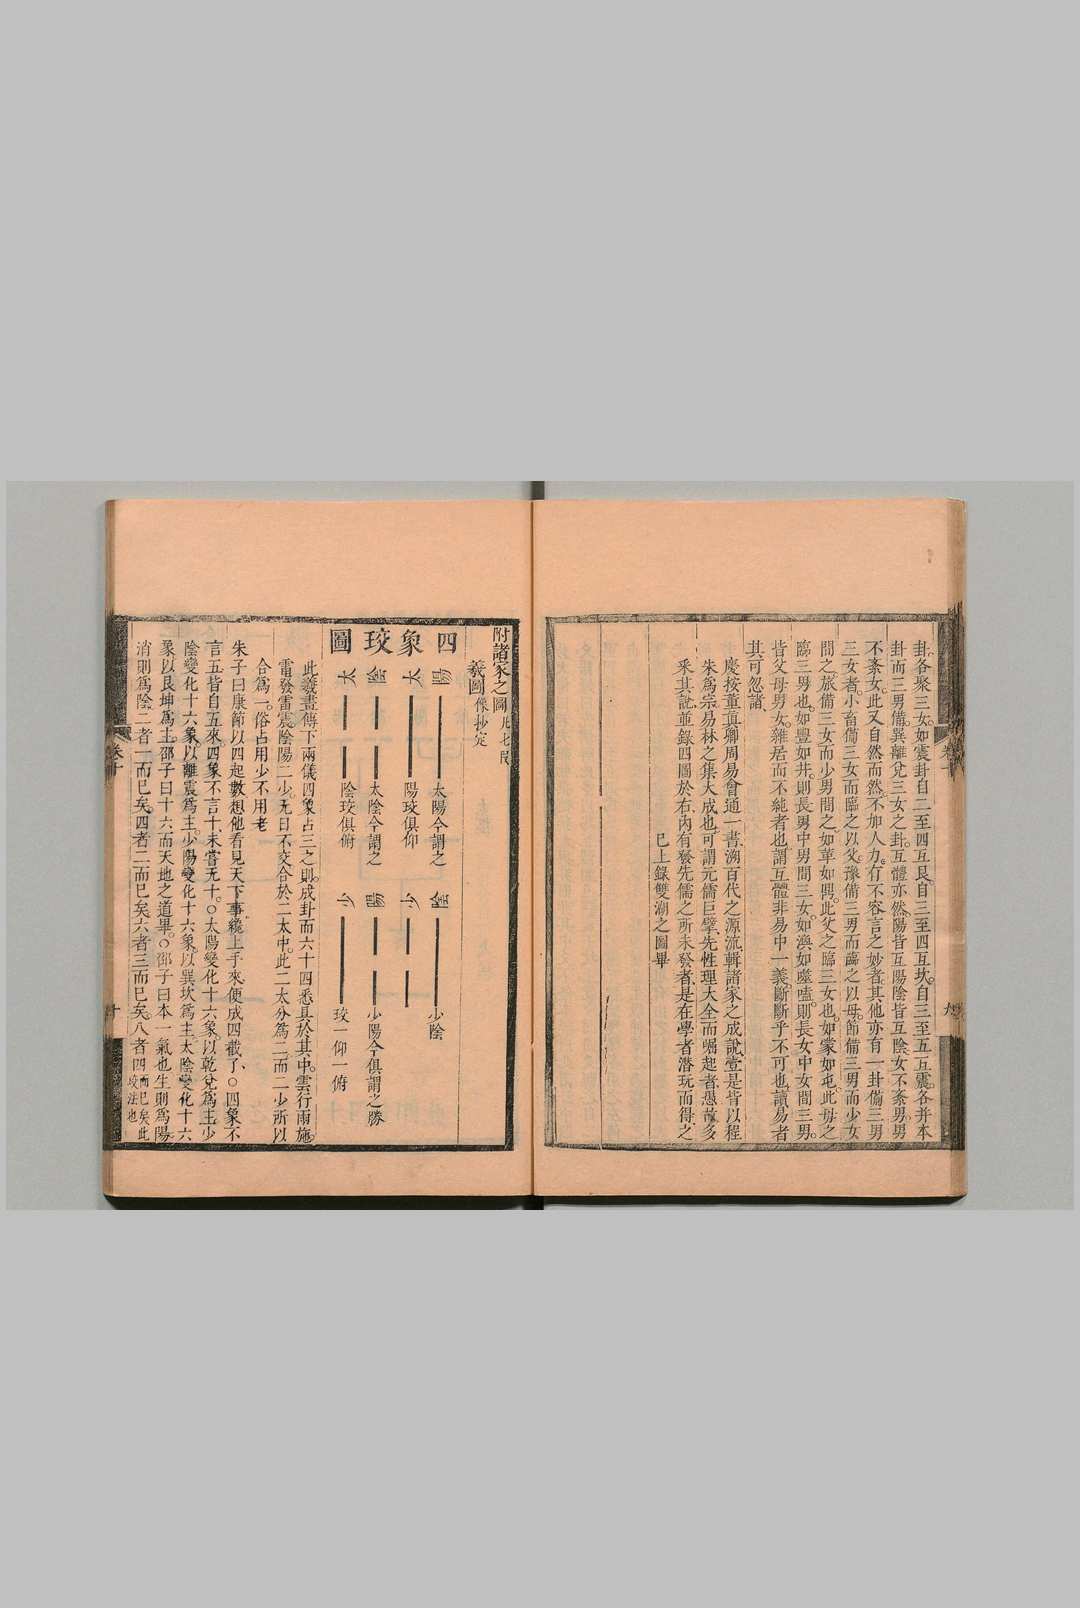 卦各聚三女。如震卦自二至四互艮。自三至四互坎。自三至五互震。各并本
卦而三男備。巽離兌三女之卦。互體亦然。陽皆互陽。陰皆互陰。女不紊男。男
不紊女。此又自然而然。不加人力。有不容言之妙者。其他亦有一卦備三男
三女者。小畜備三女而臨之以父。豫備三男而臨之以母。節備三男而少女
間之。旅備三女而少男間之。如萃如姤。此父之臨三女也。如蒙如屯。此母之
臨三男也。如豐如井。則長男中男間三女。如渙如噬嗑。則長女中女間三男。
皆父母男女。雜居而不純者也。謂互體非易中一義。斷斷乎不可也。讀易者
其可忽諸。
慶按董眞卿周易會通一書。溯百代之源流。輯諸家之成說。壹是皆以程
朱爲宗。易林之集大成也。可謂元儒巨擘。先性理大全而崛起者。愚故多
采其說。並錄四圖於右。內有發先儒之所未發者。是在學者潛玩而得之
已上錄雙湖之圖畢
卷十
九
附諸家之圖
羲圖
四象珓圖
太陽
太陽今謂之
陽珓俱仰
太陰
太陰今謂之
陰珓俱俯
少陰
少陰
少陽
少陽今俱謂之勝
珓一仰一俯
此羲畫傳下兩儀四象占三之則。成卦而六十四悉具於其中。雲行雨施。
電發雷震。陰陽二少。无日不交合於二太中。此二太分爲二。而二少所以
合爲一。俗占用少不用老
朱子曰康節以四起數。想他看見天下事纔上手來。便成四截了。○四象不
言五。皆自五來。四象不言十。未嘗无十。○太陽變化十六象。以乾兌爲主。少
陰變化十六象。以離震爲主。少陽變化十六象。以巽坎爲主。太陰變化十六
象。以艮坤爲主。邵子曰十六而天地之道畢。○邵子曰本一氣也。生則爲陽。
消則爲陰。二者一而已矣。四者二而已矣。六者三而已矣。八者四而已矣此珓法也
卷十
十